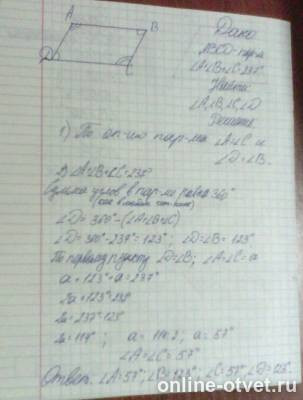 A
B
D
C
Дано
ABCD-пар-м
∠A+∠B+∠C=237°
Найти
∠A,∠B,∠C,∠D
Решение
1) По оп-ию пар-ма ∠A=∠C и
∠D=∠B.
2) ∠A+∠B+∠C=237°
Сумма углов в пар-ме равна 360°
∠D= 360°-(∠A+∠B+∠C)
∠D= 360°-237°=123° ; ∠D=∠B= 123°
По первому пункту ∠D=∠B; ∠A=∠C=a
a+123°+a=237°
2a+123°=237°
2a=237°-123°
2a=114° ; a=114:2; a=57°
∠A=∠C=57°
Ответ: ∠A=57°; ∠B=123°; ∠C=57°; ∠D=123°.
online-otvet.ru